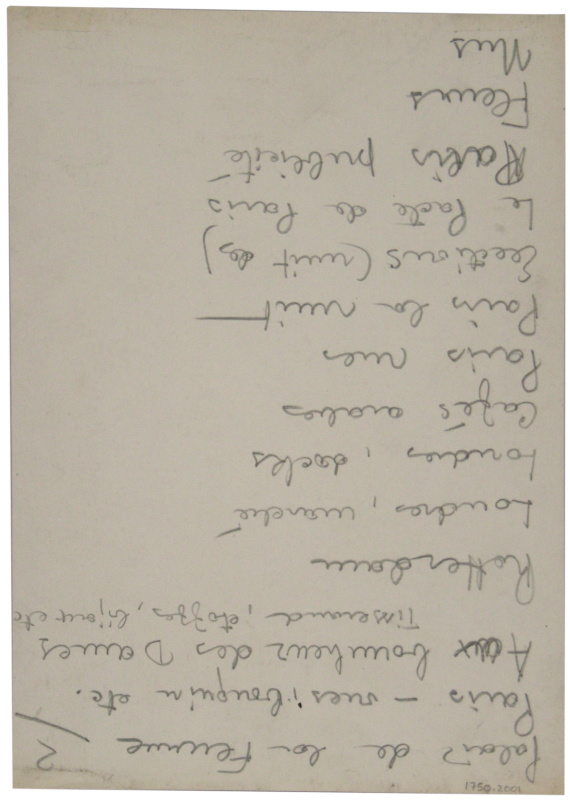 Palais de la Femme 2
Paris – rues, bouquin etc.
Aux bonheur des Dames
Tisserand, étoffes, bijoux etc
Rotterdam
Londres, marché
Londres, docks
Cafés arabes
Paris rues
Paris la nuit —
Elections (nuit des)
Le Pacte de Paris
Paris publicité
Fleurs
Nus
1750.2001